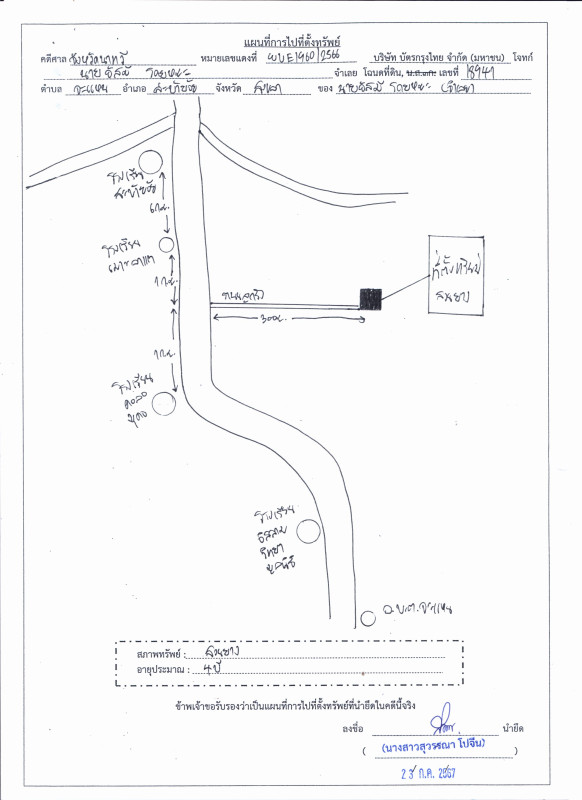 แผนที่การไปที่ตั้งทรัพย์
คดีศาล จังหวัดนาทวี หมายเลขแดงที่ ผบE1960/2566 บริษัท บัตรกรุงไทย จำกัด (มหาชน) โจทก์
นาย จำเลย โฉนดที่ดิน, น.ส.3ก. เลขที่ 18941
ตำบล จะแหน อำเภอ สะบ้าย้อย จังหวัด สงขลา ของ นาย (จำเลย)
โรงเรียน
สะบ้าย้อย
6 กม.
โรงเรียน
1 กม.
ถนนลูกรัง
300ม.
ที่ตั้งทรัพย์
สวนยาง
1 กม.
โรงเรียน
โรงเรียน
อิสลาม
วิทยา
มูลนิธิ
อ.บ.ต.จะแหน
สภาพทรัพย์ : สวนยาง
อายุประมาณ : 4 ปี
ข้าพเจ้าขอรับรองว่าเป็นแผนที่การไปที่ตั้งทรัพย์ที่นำยึดในคดีนี้จริง
ลงชื่อ นำยึด
(นางสาวสุวรรณา โปจีน)
25 ก.ค. 2567